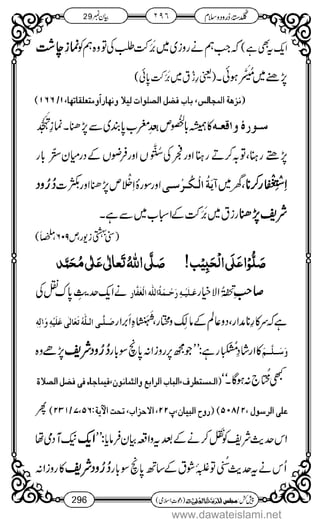 بیان نمبر 29
۲۹۶
گلدستۂ دُرود و سلام
ایک یہ بھی ہے) کہ جب ہم نے روزی میں بَرَکت طلب کی تو وہ ہم کو نمازِ چاشت
پڑھنے میں مُیَسَّر ہوئی۔ (یعنی رِزْق میں بَرَکت پائی)
(نزھة المجالس، باب فضل الصلوات لیلا ونھارًا ومتعلقاتھا، ۱/۱۶۶)
سورۂ واقعہ کا ہمیشہ بالخُصُوص بعدِ مغرِب پابندی سے پڑھنا۔ نمازِ تہَجُّد
پڑھتے رہنا، توبہ کرتے رہنا اور فَجْر کی سُنَّتوں اور فَرضوں کے درمیان ستّر بار
اِسْتِغْفار کرنا، گھر میں آیَۃُ الْکُرْسی اور سورۂ اِخْلاص پڑھنا اور بکثرت دُرُود
شریف پڑھنا رِزْق میں بَرَکت کے اسباب میں سے ہے۔
(سنی بہشتی زیور، ص ۶۰۹ ملخصاً)
صَلُّوْا عَلَی الْحَبِیْبْ! صَلَّی اللہُ تَعَالٰی عَلٰی مُحَمَّد
صاحبِ تُحْفَۃُ الاخیار عَلَیْہِ رَحْمَۃُ اللہِ الْغَفَّار نے ایک حدیثِ پاک نقْل کی
ہے کہ سرکارِ نامدار، دو عالم کے مالک و مختار، شَہَنْشاہِ اَبرار صَلَّی اللہُ تَعَالٰی عَلَیْہِ وَاٰلِہٖ
وَسَلَّم کا ارشادِ مُشکبار ہے: ’’جو مجھ پر روزانہ پانچ سو بار دُرُودِ شریف پڑھے وہ
کبھی مُحتاج نہ ہوگا۔‘‘ (المستطرف، الباب الرابع والثمانون، فیماجاء فی فضل الصلاة
علی الرسول، ۲/۵۰۸) (روح البیان، پ۲۲، الاحزاب، تحت الآیة: ۵۶، ۷/۲۳۱) پھر
اس حدیث شریف کو نقل کرنے کے بعد یہ واقعہ بیان فرمایا: ’’ایک نیک آدمی تھا
اُس نے یہ حدیث سُنی تو غلبۂ شوق کے ساتھ پانچ سو بار دُرُودِ شریف کا روزانہ
296
پیش کش: مجلس اَلْمَدِیْنَۃُ الْعِلْمِیَّۃ (دعوتِ اسلامی)
www.dawateislami.net